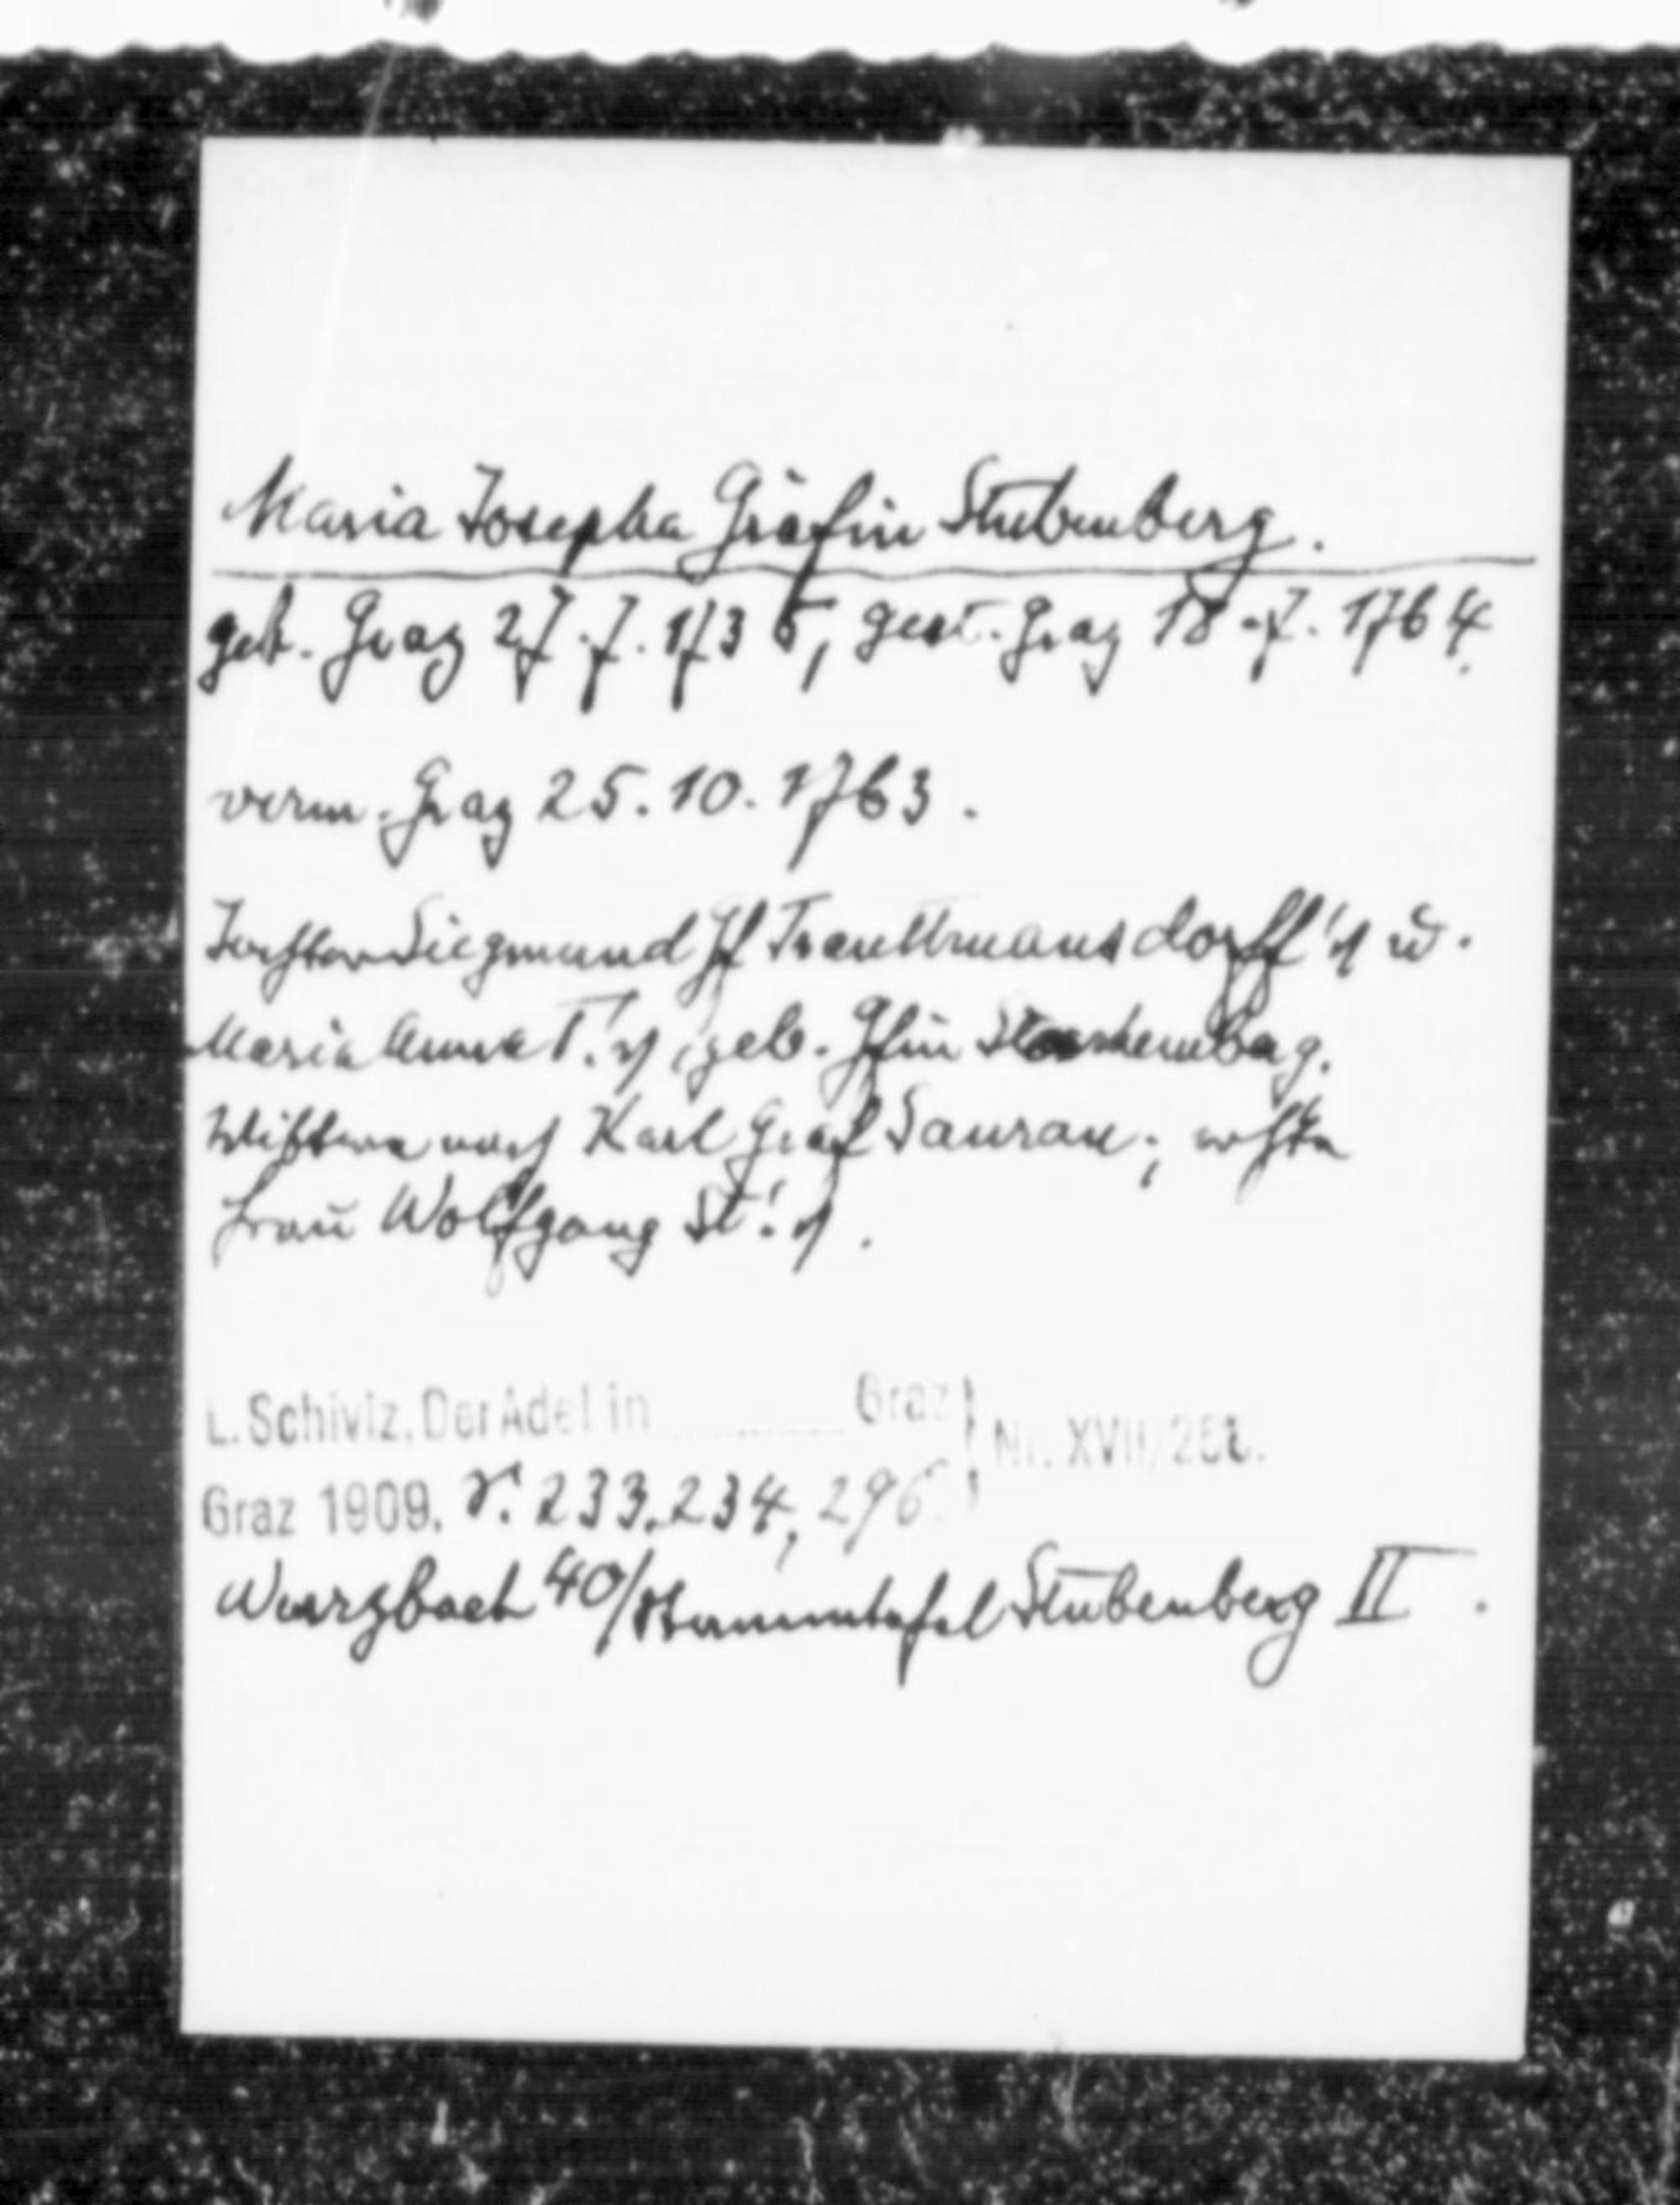 Maria Josepha Gräfin Stubenberg.
geb. Graz 27.7.1735, gest. Graz 18.7.1764.
verm. Graz 25.10.1763.
Tochter Siegmund Gf Trauttmansdorff's u.
Maria Anna T.'s, geb. Gfin Starhemberg.
Wittwe nach Karl Graf Saurau; erste
Frau Wolfgang St.'s.
L. Schiviz, Der Adel in Graz
Nr. XVII/
Graz 1909. S. 233, 234, 296.
Wurzbach 40/Stammtafel Stubenberg II.